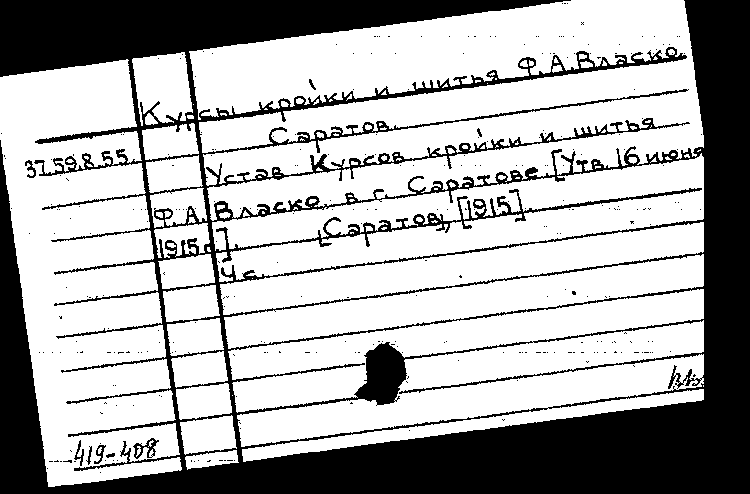 Курсы кройки и шитья Ф.А.Власко.
Саратов.
37.59.8.55.
Устав Курсов кройки и шитья
Ф.А.Власко в г. Саратове. [Утв. 16 июня
1915 г.]. [Саратов], [1915].
4 с.
419-408